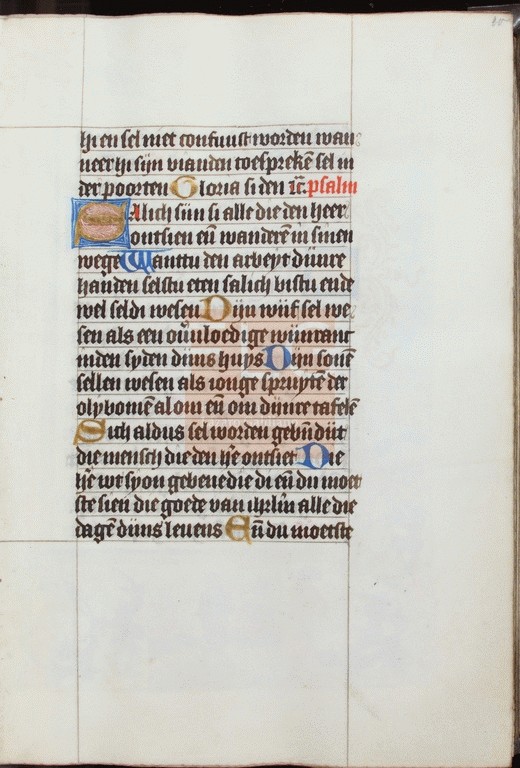 hi en sel niet confuust worden wan
neer hi sijn vianden toespreke̅ sel in
der poorten Gloria si den ic̅. psalm
Salich sijn si alle die den heer
ontsien en̅ wandere̅ in sinen
wege Wanttu den arbeyt dijnre
handen selstu eten salich bistu ende
wel seldi wesen Dijn wijf sel we
sen als een ou̅vloedige wijntant
inden syden dijns huys Dijn sone̅
sellen wesen als ionge spruyte̅ der
olybome̅ al om en̅ om dijnre tafele̅
Sich aldus sel worden gebn̅dijt
die mensch die den he̅ ontsiet Die
he̅ wt syon gebenedie di en̅ du moet
ste sien die goede van ihrl̅m alle die
dage̅ dijns leuens En̅ du moetste